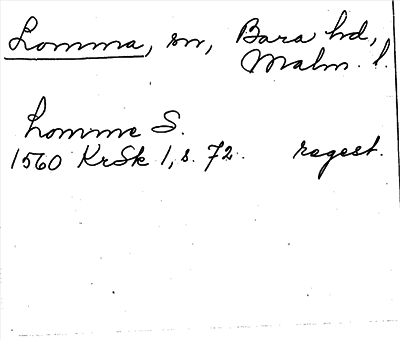 Lomma, sn, Bara hd,
Malm. l.
Lomme S.
1560 KrSk 1, s. 72. regest.